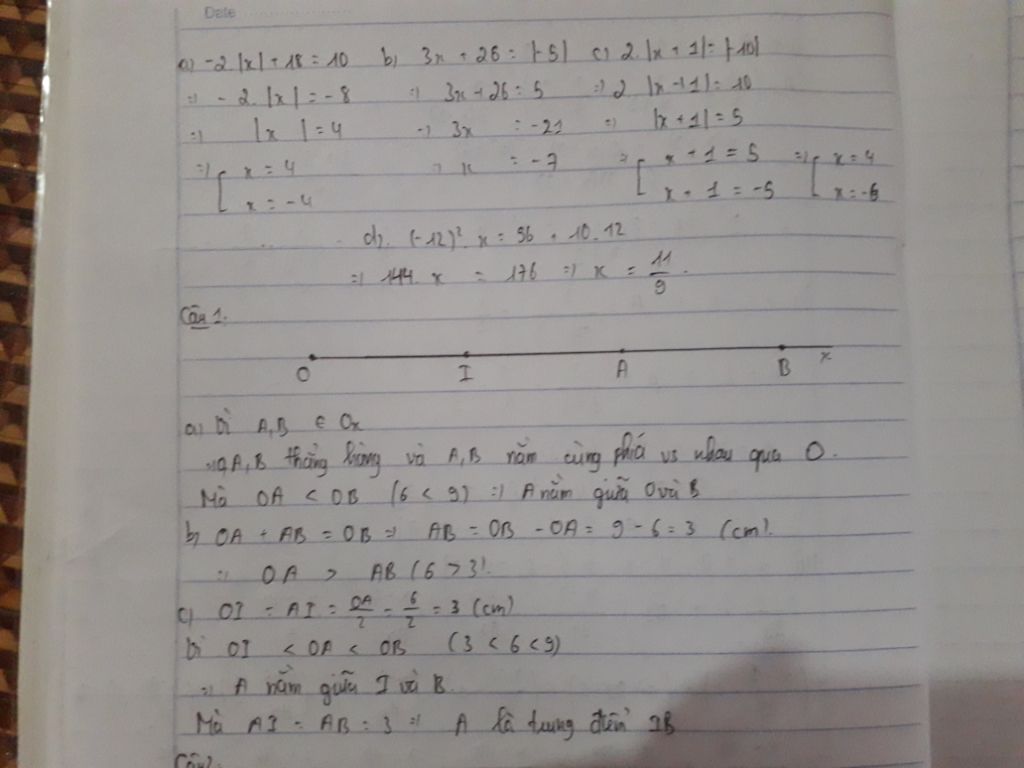 Date
a) -2.|x| + 18 = 10 b) 3x + 26 = |-5| c) 2.|x + 1| = |-10|
=) - 2. |x| = -8 =) 3x + 26 = 5 =) 2 |x + 1| = 10
=) |x| = 4 =) 3x = -21 =) |x + 1| = 5
=) [ x = 4 x = -7 => [ x + 1 = 5 =) [ x = 4
x = -4 x + 1 = -5 x = -6
d). (-12)². x = 56 + 10.12
=) 144. x = 176 =) x = 11/9.
Câu 1.
O I A B x
a) Vì A,B ∈ Ox
=) O,A,B thẳng hàng và A,B nằm cùng phía vs nhau qua O.
Mà OA < OB (6 < 9) =) A nằm giữa O và B
b) OA + AB = OB =) AB = OB - OA = 9 - 6 = 3 (cm).
=) OA > AB (6 > 3).
c) OI = AI = OA/2 = 6/2 = 3 (cm)
Vì OI < OA < OB (3 < 6 < 9)
=) A nằm giữa I và B.
Mà AI = AB = 3 =) A là trung điểm IB
Câu 2.